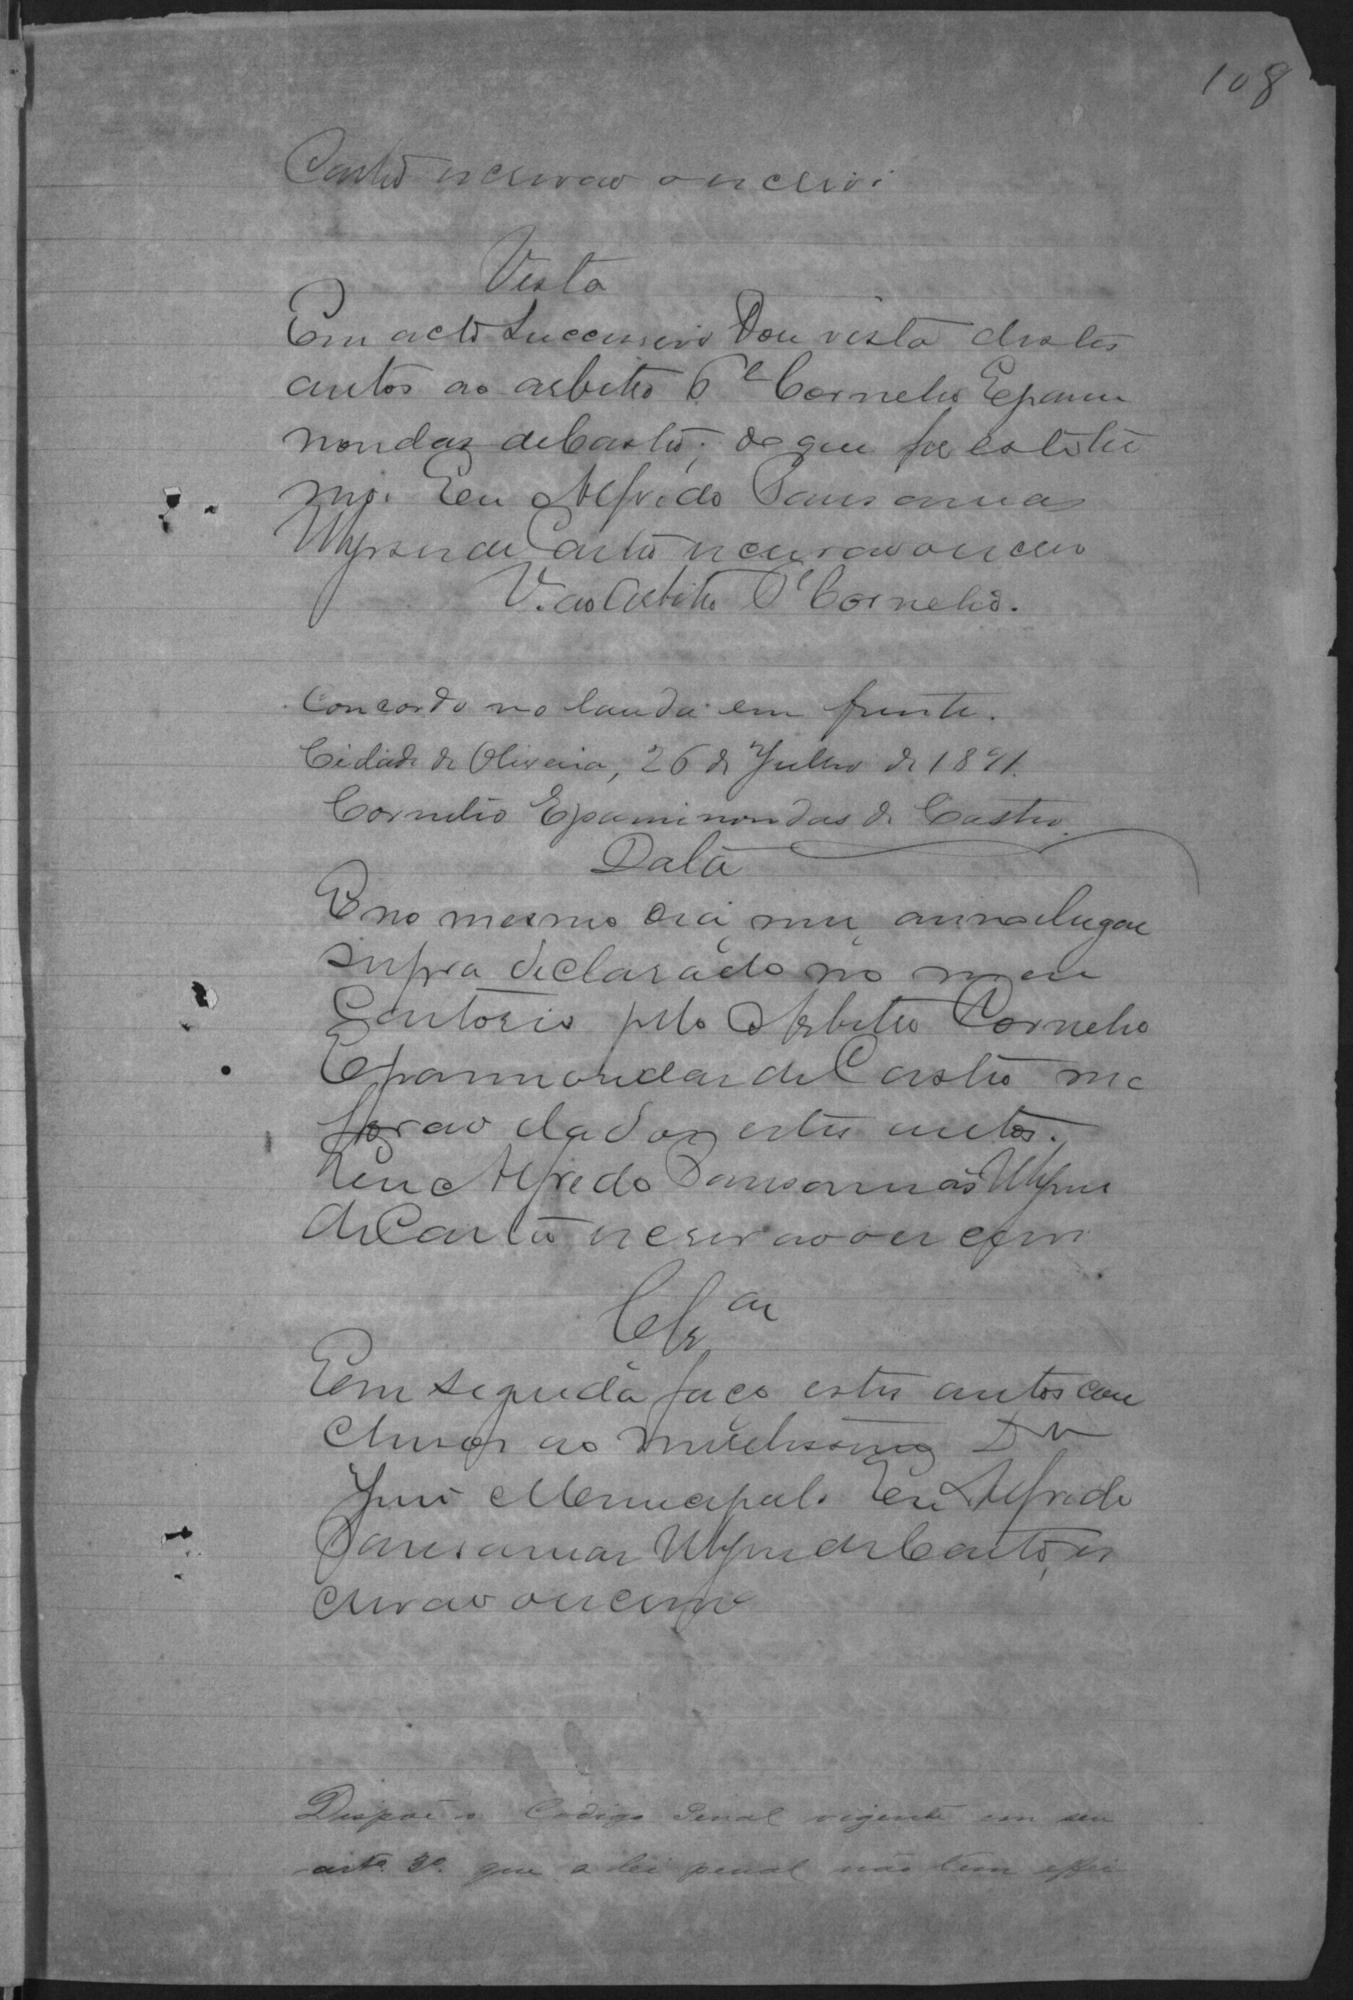 108
Castro escrivão o escrevi
Vista
Em acto successivo Dou vista destes
autos ao arbitro Cornelio Epami
nondas de Castro; do que fiz este ter
mo. Eu Alfredo Pausanias
de Castro escrivão o escrevi
V. ao Arbitro Cornelio.
Concordo no laudo em frente.
Cidade de Oliveira, 26 de Julho de 1891.
Cornelio Epaminondas de Castro
Data
E no mesmo dia, mez, anno e lugar
supra declarado no meu
Cartorio pelo Arbitro Cornelio
Epaminondas de Castro me
forão dados estes autos.
Eu Alfredo Pausanias
de Castro escrivão o escrevi
Clsão
Em seguida faço estes autos con
clusos ao Dr
Juiz Municipal. Eu Alfredo
Pausanias de Castro, es
crivão o escrevi
Dispõe o Codigo Penal vigente em seu
arto 3o. que a lei penal não tem effei